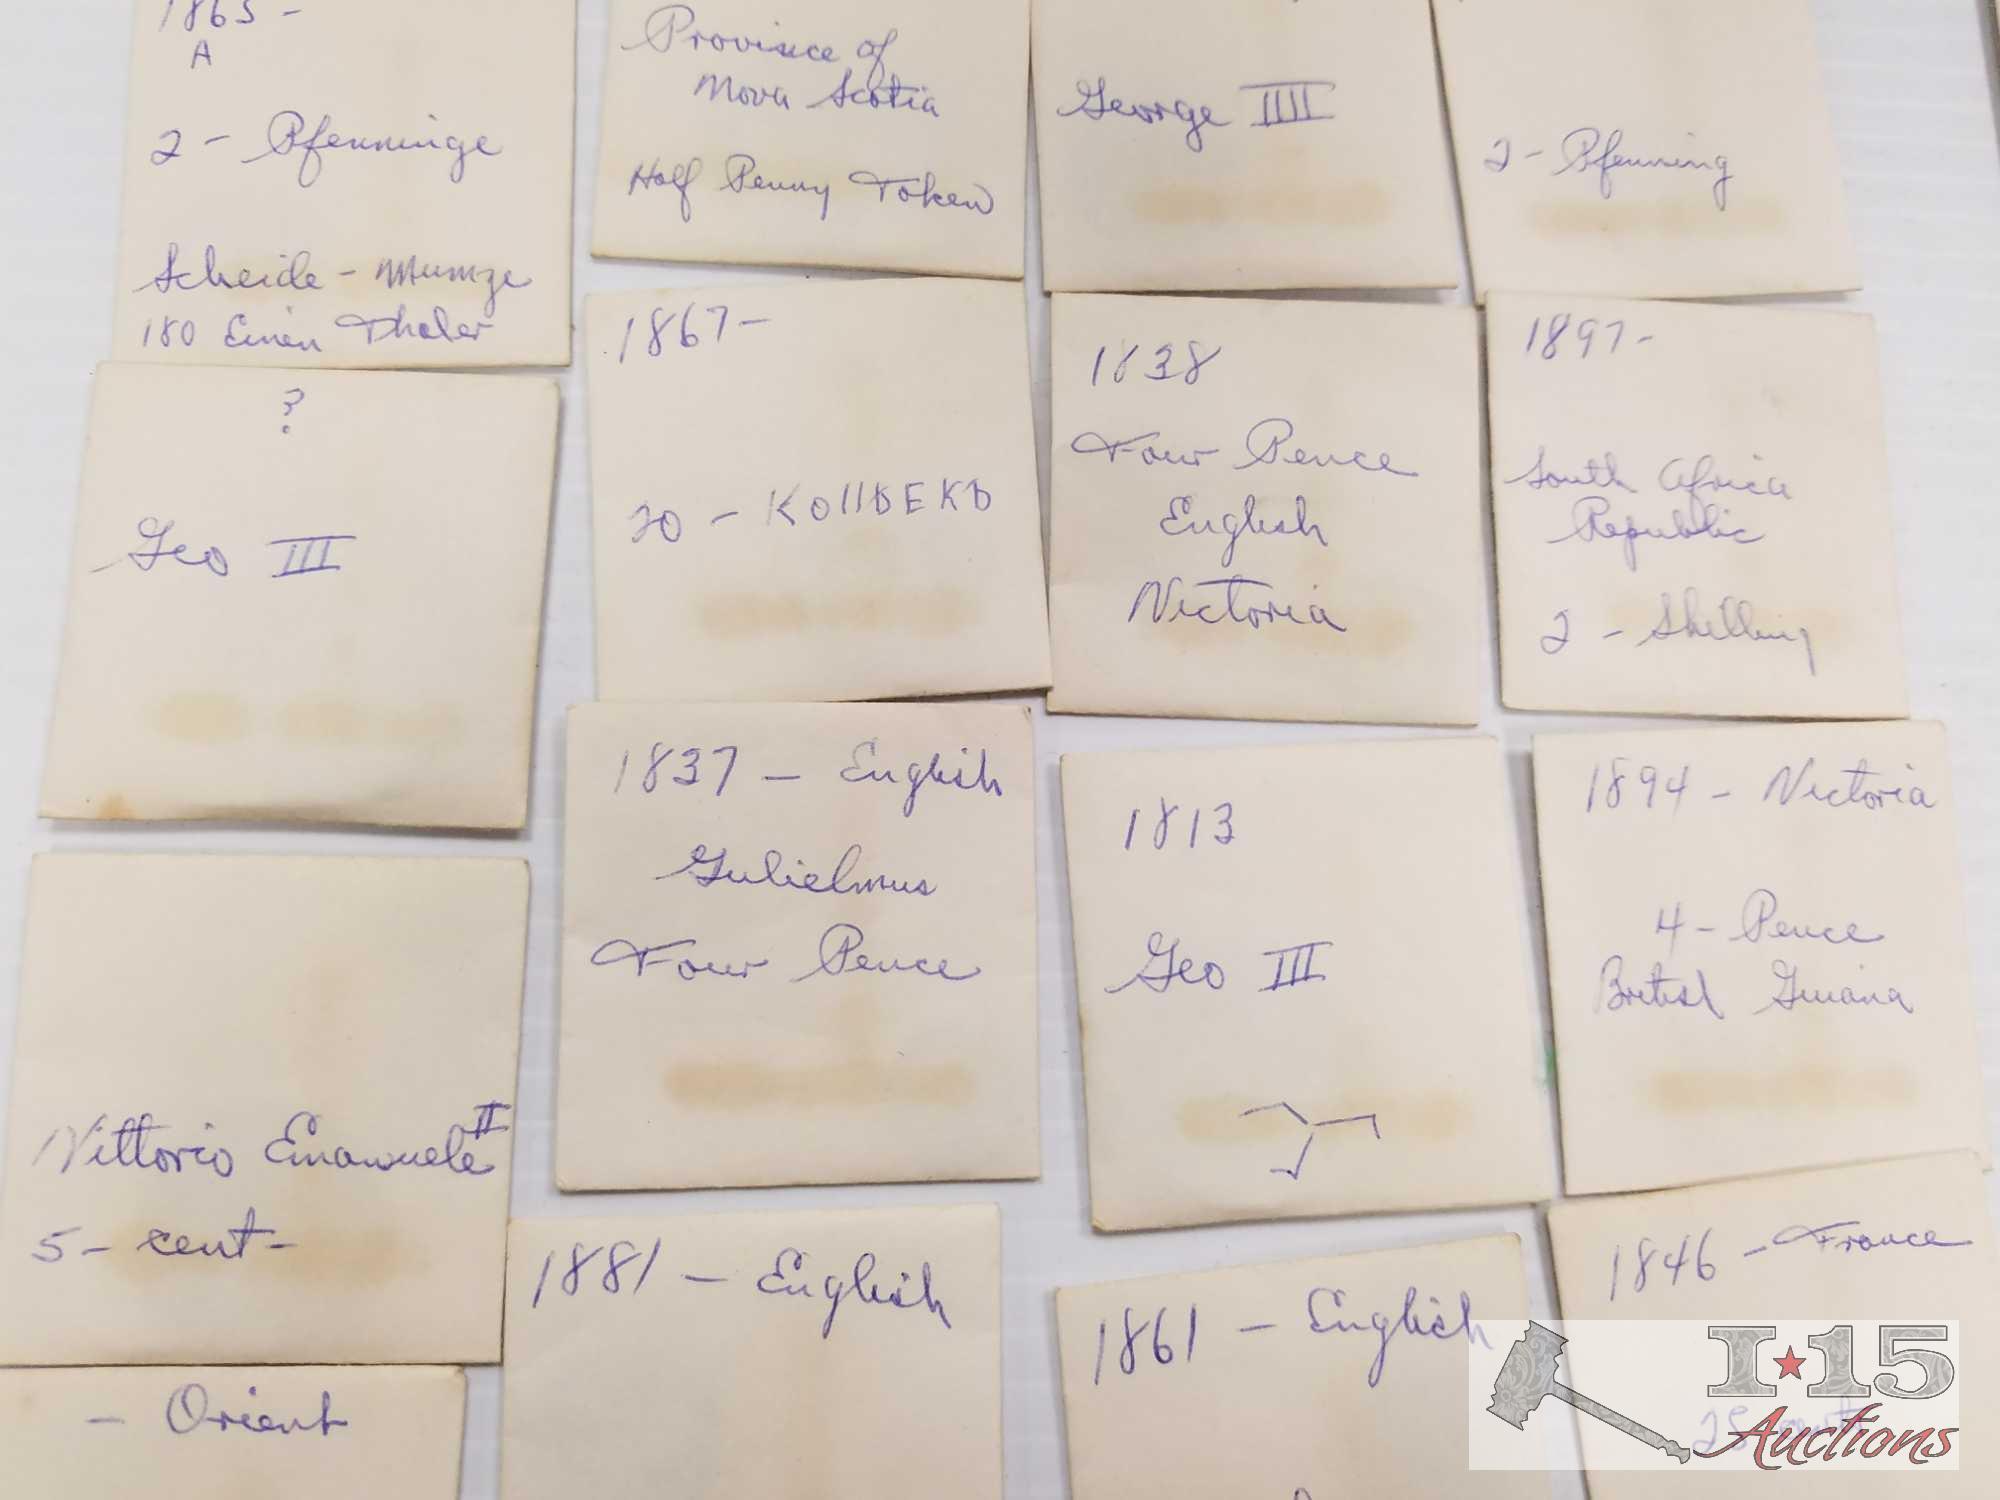 1865 -
A
2 - Pfenninge
Scheide - Munze
180 Einen Thaler
Province of
Nova Scotia
Half Penny Token
George IIII
2 - Pfenning
?
Geo III
1867 -
20 - КОПѢЕКЪ
1838
Four Pence
English
Victoria
1897 -
South Africa
Republic
2 - Shilling
Vittorio Emanuele II
5 - cent -
1837 - English
Gulielmus
Four Pence
1813
Geo III
1894 - Victoria
4 - Pence
British Guiana
- Orient
1881 - English
1861 - English
1846 - France
25
I-15
Auctions